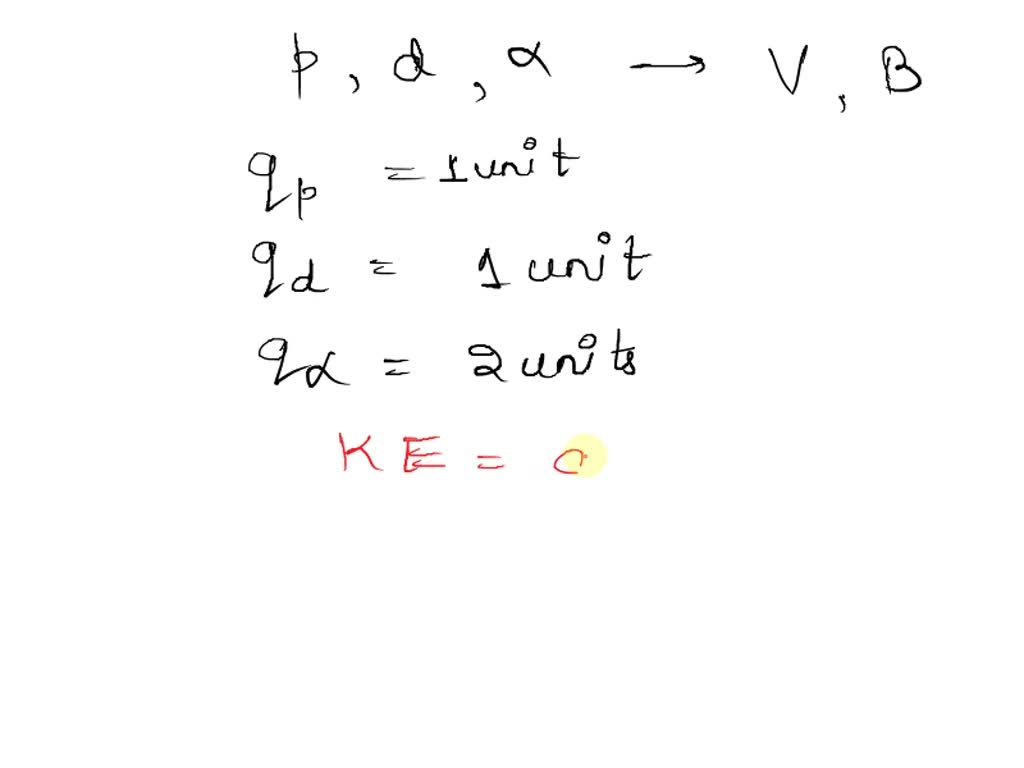 p, d, α → V, B
qp = 1 unit
qd = 1 unit
qα = 2 units
KE =